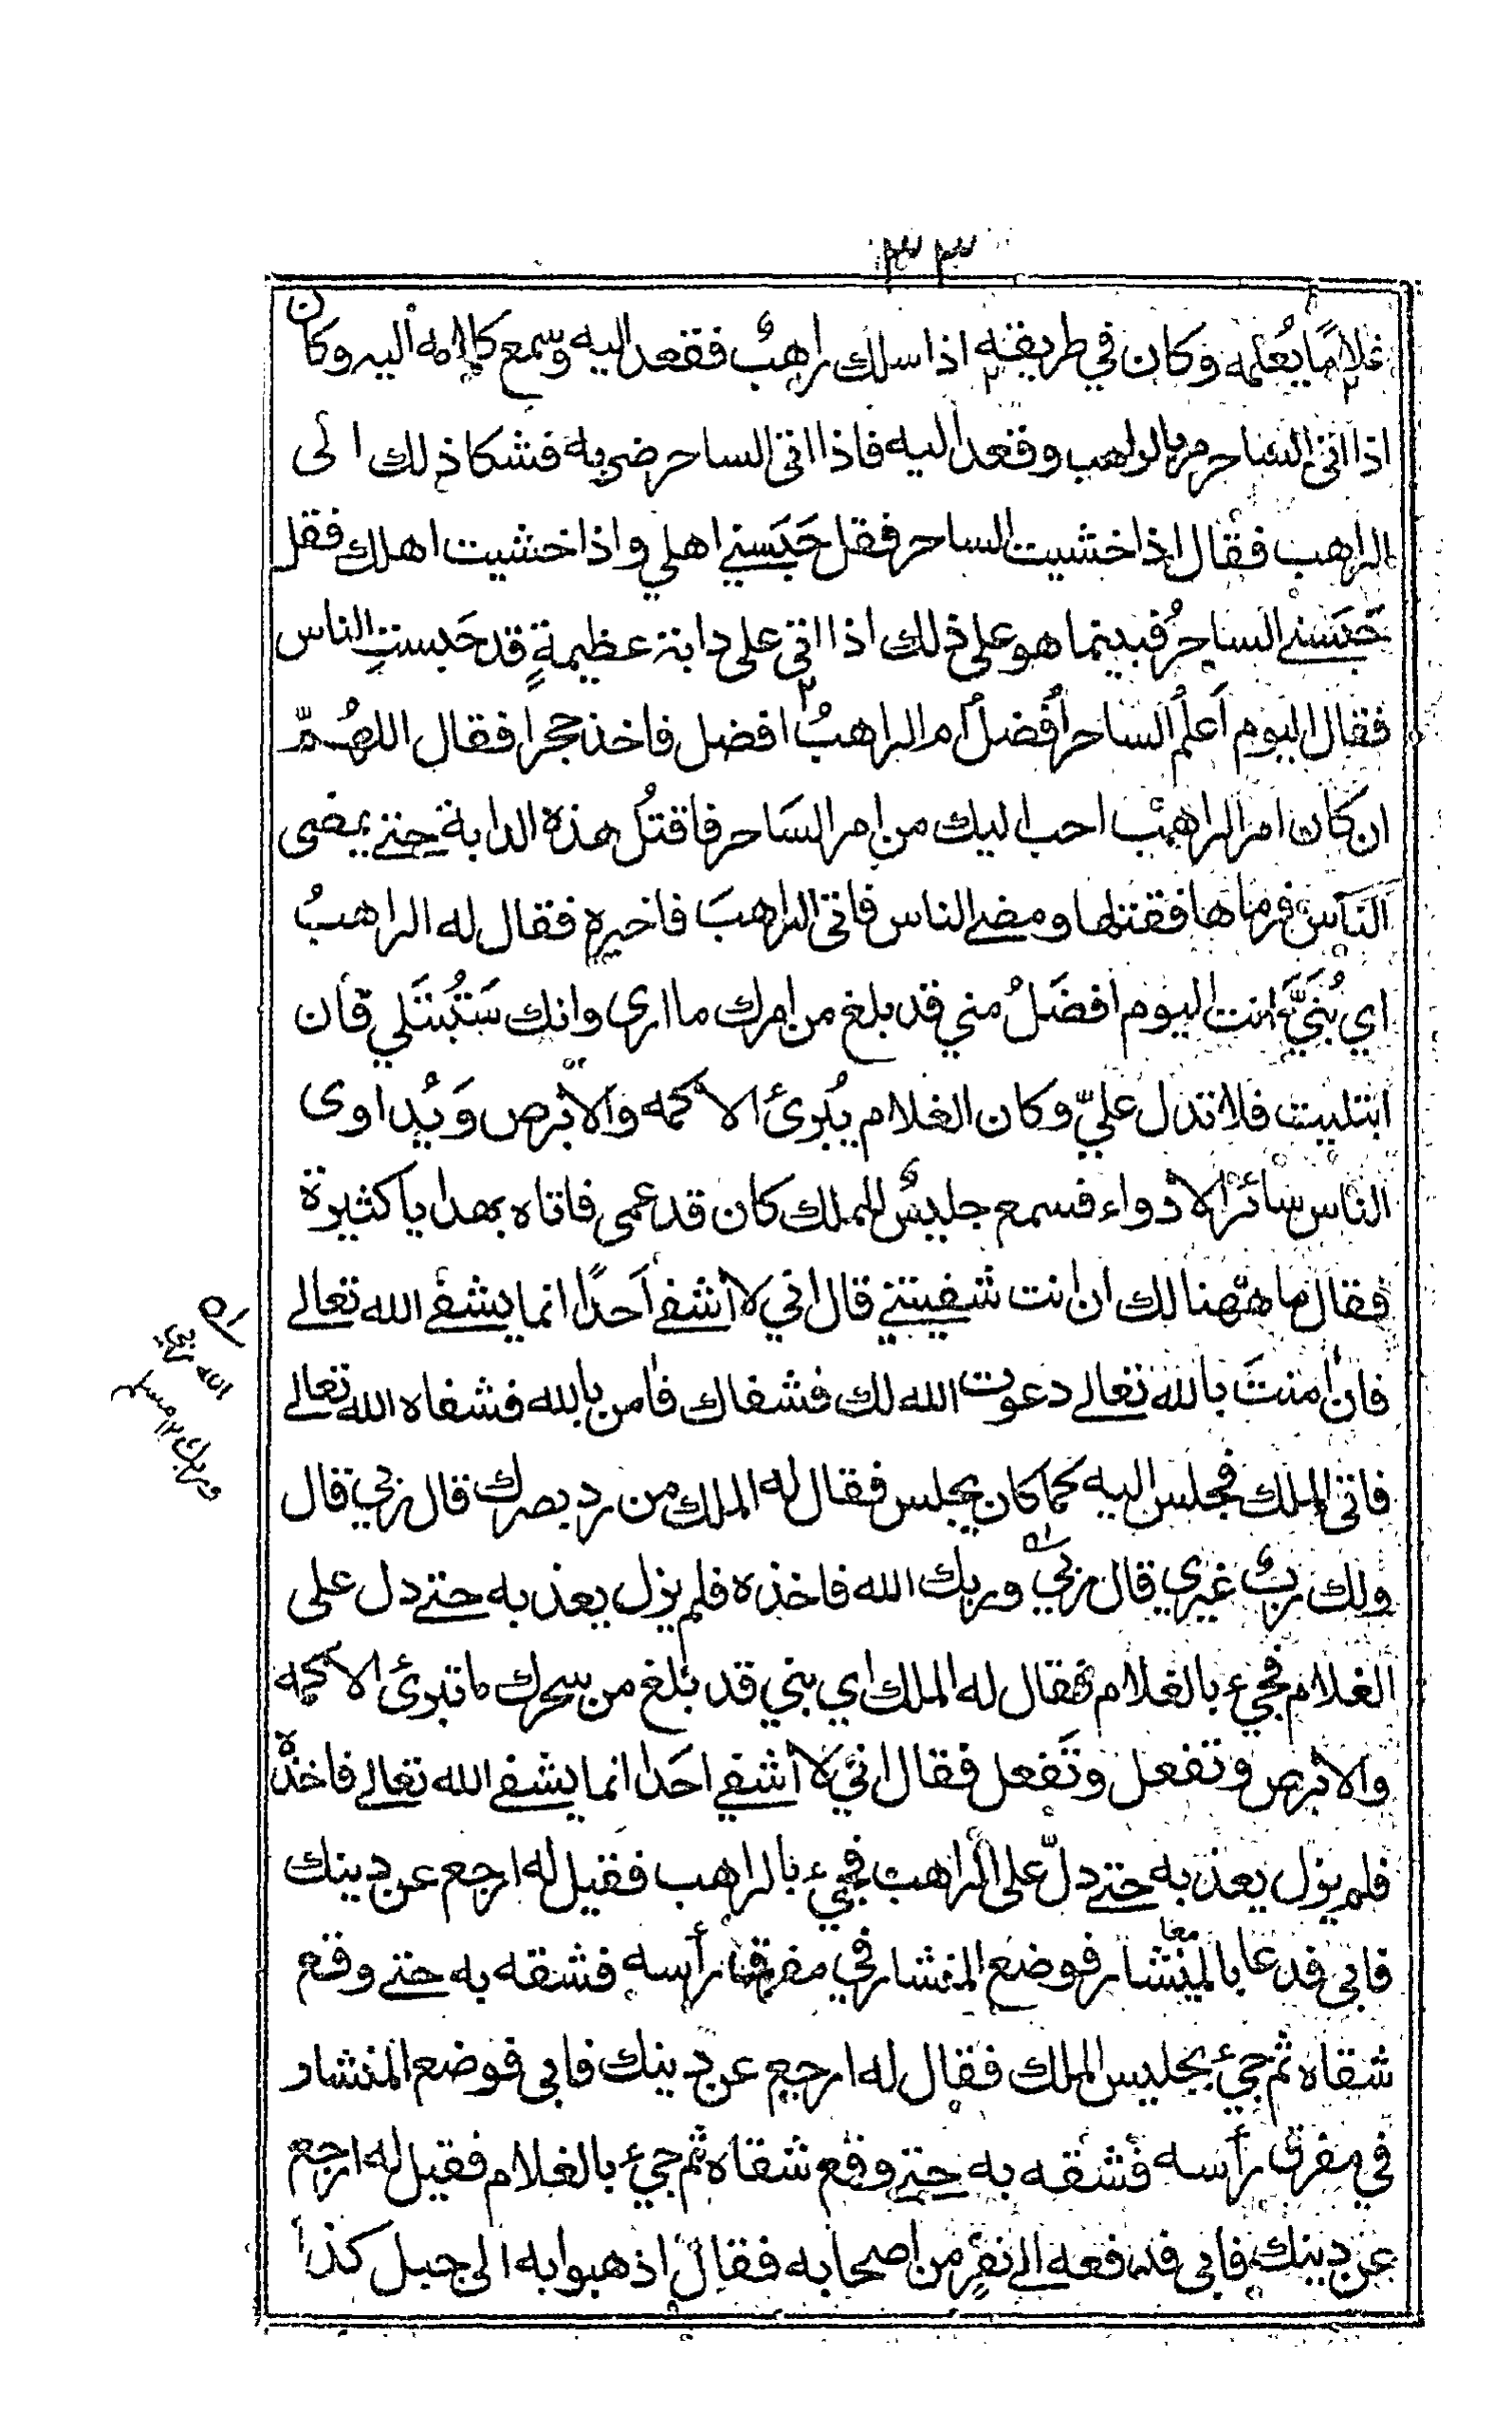 ٣٣
غلامًا يُعلمه وكان في طريقه اذا سلك راهبٌ فقعد اليه وسمع كلامه اليه وكان
اذا اتى الساحر مر بالراهب وقعد اليه فاذا اتى الساحر ضربه فشكا ذلك الى
الراهب فقال اذا خشيت الساحر فقل حَبَسني اهلي واذا خشيت اهلك فقل
حَبَسني الساحرُ فبينما هو على ذلك اذا اتى على دابة عظيمةٍ قد حَبست الناس
فقال اليوم أَعلمُ الساحر أفضلُ أم الراهبُ افضل فاخذ حجرا فقال اللهُمّ
ان كان امر الراهب احب اليك من امر السَاحر فاقتُل هذه الدابة حتى يمضى
النَاس فرماها فقتلها ومضى الناس فاتى الراهبَ فاخبره فقال له الراهبُ
اي بُنَيَّ انت اليوم أفضَلُ مني قد بلغ من امرك ما ارى وانك سَتُبْتَلي فأن
ابتليت فلا تدل عليّ وكان الغلام يُبرئ الاكمه والأبرص وَيُداوى
الناس سائر الادواء فسمع جليسٌ للملك كان قد عمى فاتاه بهدايا كثيرة
فقال ما ههنا لك ان انت شفيتني قال اني لا أشفي أحدًا انما يشفي الله تعالى
فان أمنتَ بالله تعالى دعوت الله لك فشفاك فأمن بالله فشفاه الله تعالى
فاتى الملك فجلس اليه كما كان يجلس فقال له الملك من رد بصرك قال ربي قال
ولك ربٌ غيري قال ربي وربك الله فاخذه فلم يزل يعذبه حتى دل على
الغلام فجيء بالغلام فقال له الملك اي بني قد بلغ من سحرك ما تبرئ الاكمه
والابرص وتفعل وتَفعل فقال اني لا أشفي احَدا انما يشفي الله تعالى فاخذه
فلم يزل يعذبه حتى دلّ على الراهب فجيء بالراهب فقيل له ارجع عن دينك
فابى فدعا بالمنشار فوضع المنشار في مفرق رأسه فشقه به حتى وقع
شقاه ثم جيئ بجليس الملك فقال له ارجع عن دينك فابى فوضع المنشار
في مفرق رأسه فشقه به حتى وقع شقاه ثم جيئ بالغلام فقيل له ارجع
عن دينك فابى فدفعه الى نفرٍ من اصحابه فقال اذهبوا به الى جبل كذا